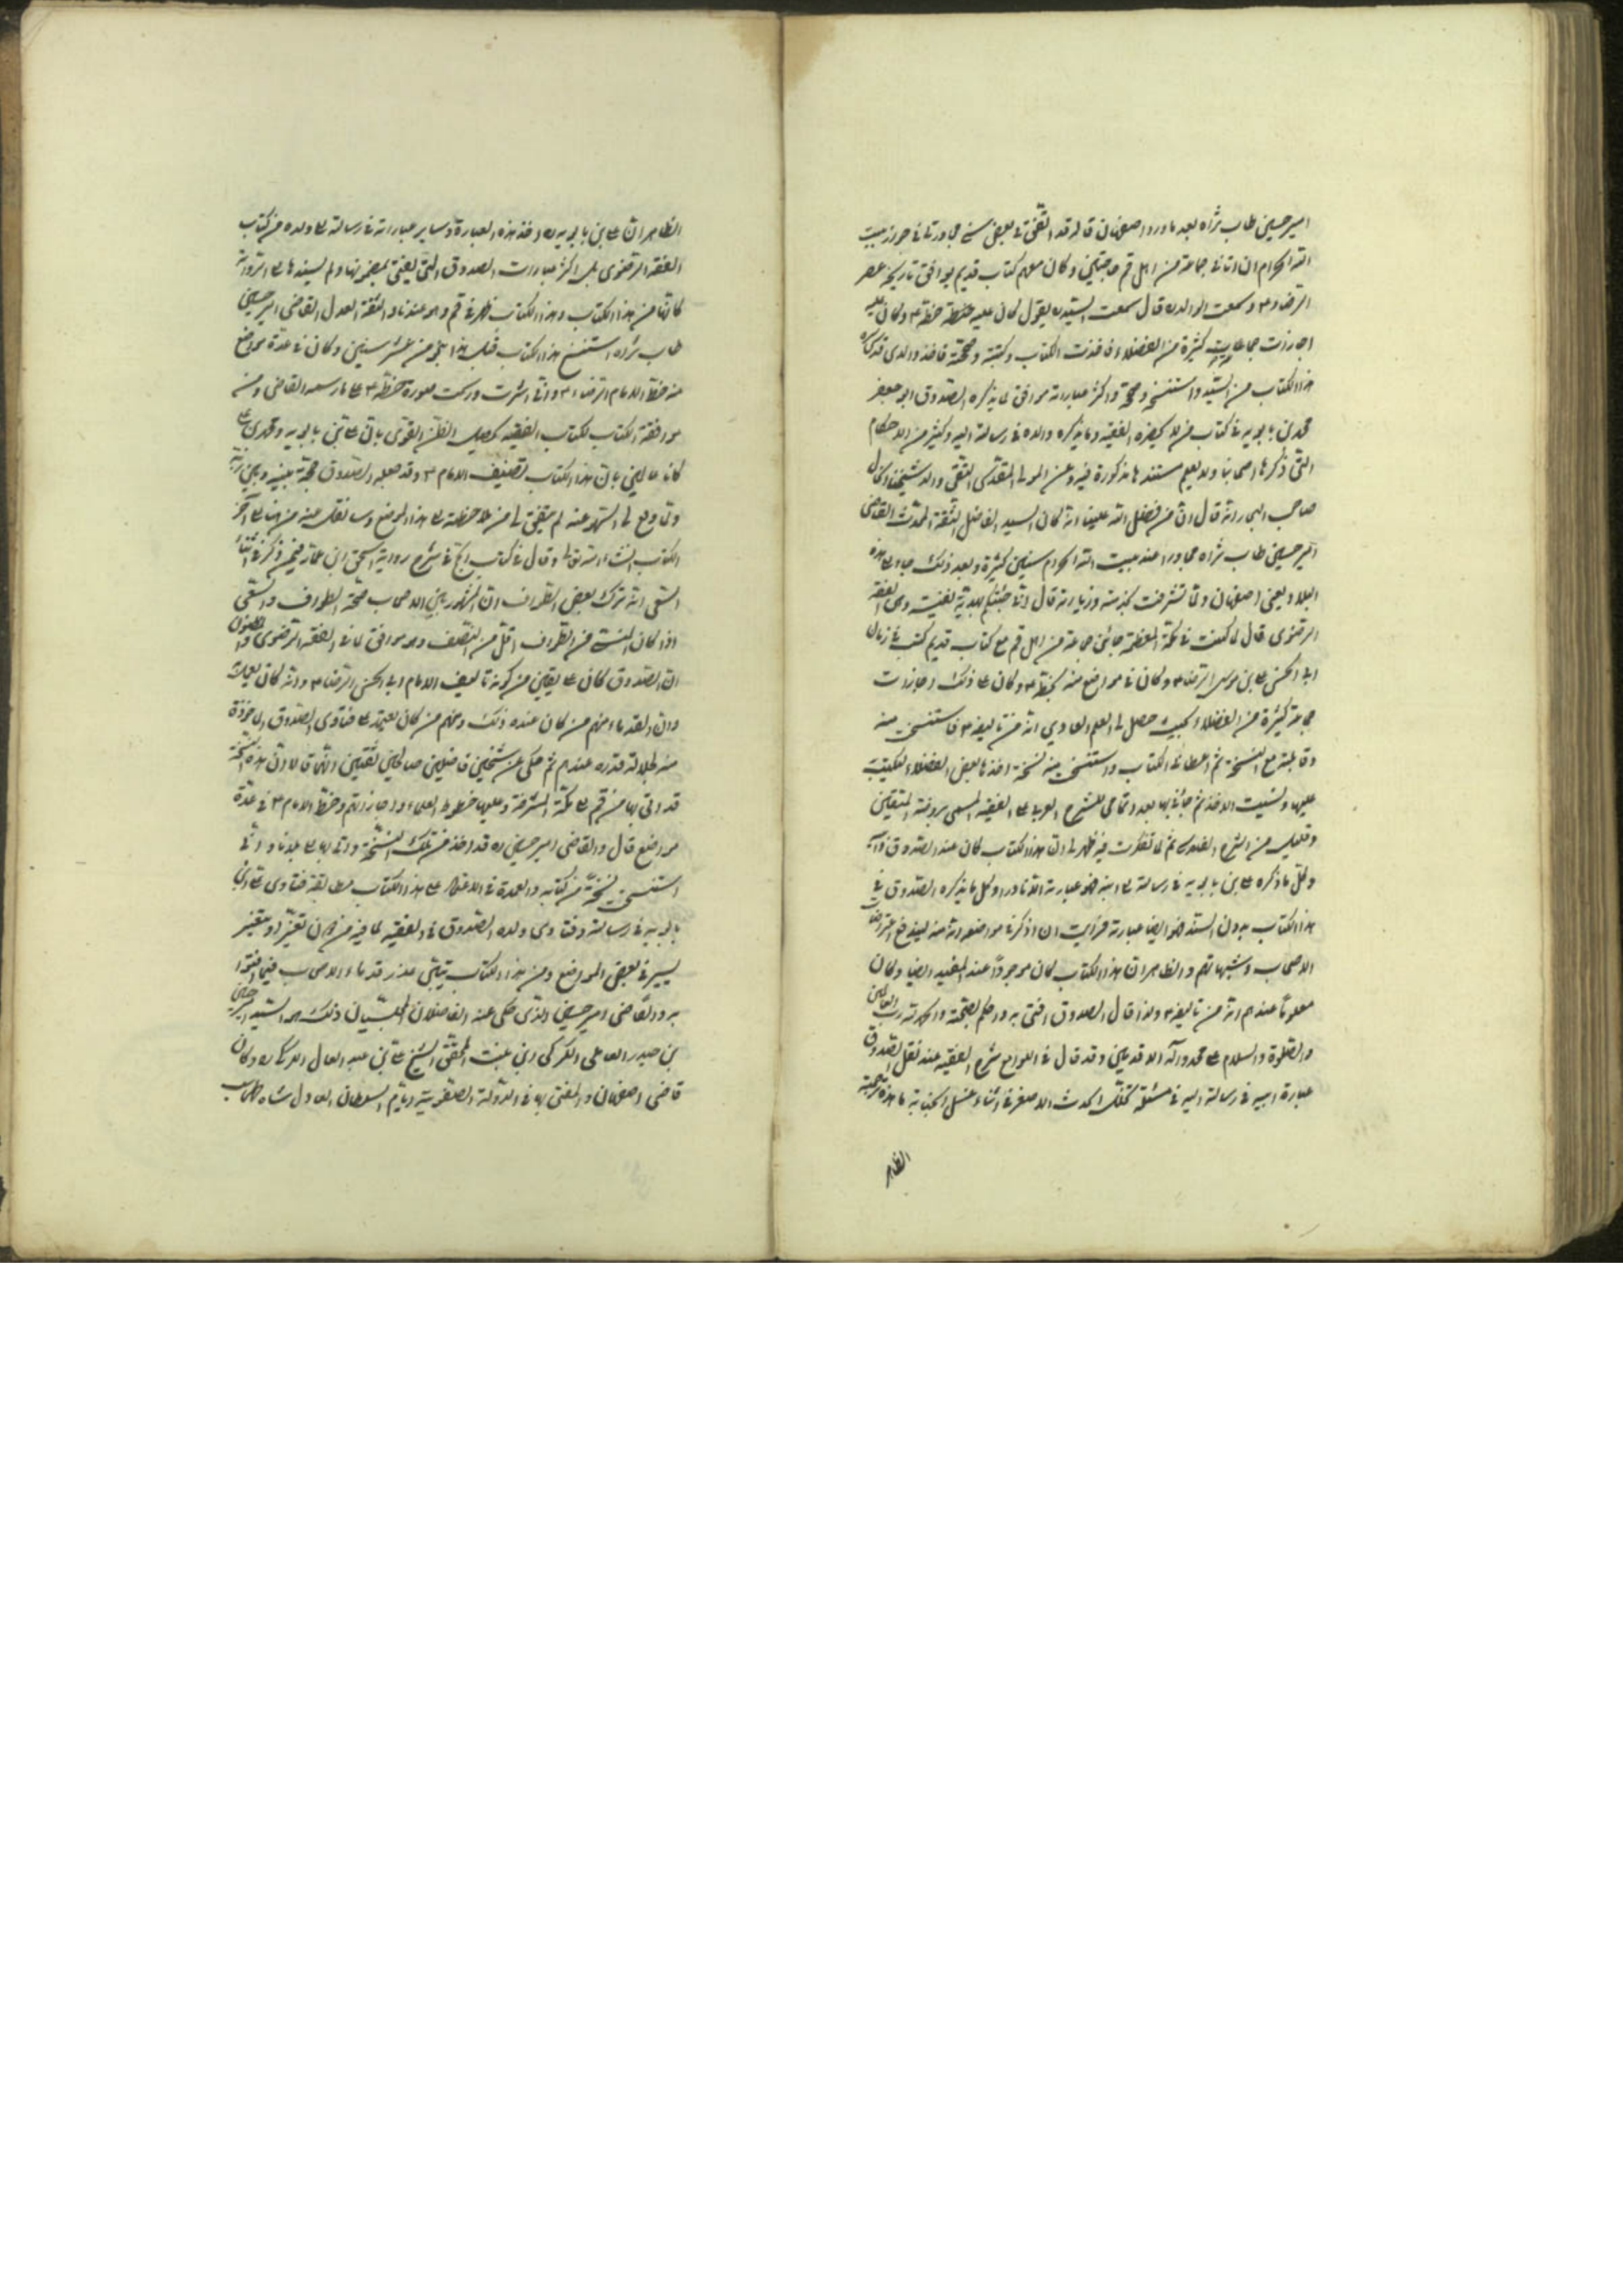 امير حسين طاب ثراه بعد ما ورد اصفهان قال قد اتفق في بعض سني مجاورتي في جوار بيت
الله الحرام ان اتاني جماعة من اهل قم حاجين وكان معهم كتاب قديم يوافق تاريخه عصر
الرضا ع وسمعت الوالد ره قال سمعت السيد ره يقول كان عليه خطه ع وكان عليه
اجازات جماعة كثيرة من الفضلاء فاخذت الكتاب وكتبته وصححته فاخذ والدي قدس سره
هذا الكتاب من السيد واستنسخه وصححه واكثر عباراته موافق لما يذكره الصدوق ابو جعفر
محمد بن بابويه في كتاب من لا يحضره الفقيه وما يذكره والده في رسالته اليه وكثير من الاحكام
التي ذكرها اصحابنا ولا يعلم مستندها مذكورة فيه وعن المولى المقدس التقي والد شيخنا
صاحب البحار انه قال ان من فضل الله علينا انه كان السيد الفاضل الثقة المحدث القاضي
امير حسين طاب ثراه مجاورا عند بيت الله الحرام سنين كثيرة وبعد ذلك جاء الى هذه
البلاد يعني اصفهان ولما تشرفت بخدمته وزيارته قال اني جئتكم بهدية نفيسة وهي الفقه
الرضوي قال لما كنت في مكة المعظمة جائني جماعة من اهل قم مع كتاب قديم كتب في زمان
ابي الحسن علي بن موسى الرضا ع وكان في مواضع منه بخطه ع وكان على ذلك اجازات
جماعة كثيرة من الفضلاء بحيث حصل لي العلم العادي انه من تاليفه ع فاستنسخت منه
وقابلته مع النسخة ثم اعطاني الكتاب واستنسخت منه نسخة اخذها بعض الفضلاء ليكتب
عليها ونسيت الاخذ ثم جائني بها بعد اتمامي للشرح العربي على الفقيه المسمى بروضة المتقين
وقليل من الشرح الفارسي ثم لما تفكرت فيه ظهر لي ان هذا الكتاب كان عند الصدوق وابيه
وكل ما ذكره علي بن بابويه في رسالته الى ابنه فهو عبارته الا نادرا وكل ما يذكره الصدوق في
هذا الكتاب بدون السند فهو ايضا عبارته فرايت ان اذكر في مواضعه انه منه ليندفع اعتراضات
الاصحاب وشبهاتهم والظاهر ان هذا الكتاب كان موجودا عند المفيد ايضا وكان
معلوما عندهم انه من تاليفه ع ولذا قال الصدوق افتي به واحكم بصحته والحمد لله رب العالمين
والصلوة والسلام على محمد وآله الاقدسين وقد قال في اللوامع شرح الفقيه عند نقل الصدوق
عبارة ابيه في رسالته اليه في مسئلة تخلل الحدث الاصغر في اثناء غسل الجنابة ما هذه ترجمته
الظاهر
الظاهر ان علي بن بابويه ره اخذ هذه العبارة وساير عباراته في رسالته الى ولده من كتاب
الفقه الرضوي بل اكثر عبارات الصدوق التي يفتي بمضمونها ولم يسندها الى الرواية
كانها من هذا الكتاب وهذا الكتاب ظهر في قم وهو عندنا والثقة العدل القاضي امير حسين
طاب ثراه استنسخ هذا الكتاب قبل هذا بنحو من عشر سنين وكان في عدة مواضع
منه خط الامام الرضا ع واني اشرت ورسمت صورة خطه ع على ما رسمه القاضي ومن
موافقة الكتاب لكتاب الفقيه يحصل الظن القوي بان علي بن بابويه ومحمد بن علي
كانا عالمين بان هذا الكتاب تصنيف الامام ع وقد جعله الصدوق حجة بينه وبين ربه
ولما وقع لي السهو عنه لم يتفق لي من ملاحظته الى هذا الموضع وسانقل عنه من هنا الى آخر
الكتاب انشاء الله تعالى وقال في كتاب الحج في شرح رواية اسحق ابن عمار فيمن ذكر في اثناء
السعي انه ترك بعض الطواف ان المشهور بين الاصحاب صحة الطواف والسعي
اذا كان المنسي من الطواف اقل من النصف وهو موافق لما في الفقه الرضوي
ان الصدوق كان على يقين من كونه تاليف الامام ابي الحسن الرضا ع وانه كان يعمل به
وان القدماء منهم من كان عنده ذلك ومنهم من كان يعتمد على فتاوى الصدوق الماخوذة
منه لجلالة قدره عندهم ثم حكى عن شيخين فاضلين صالحين ثقتين انهما قالا ان هذه النسخة
قد اتي بها من قم الى مكة المشرفة وعليها خطوط العلماء واجازاتهم وخط الامام ع في عدة
مواضع قال والقاضي امير حسين ره قد اخذ من تلك النسخة واتى بها الى بلدنا واني
استنسخت نسخة من كتابه والعمدة في الاعتماد على هذا الكتاب مطابقة فتاوى علي بن
بابويه في رسالته وفتاوى ولده الصدوق في الفقيه لما فيه من دون تغيير او بتغيير
يسير في بعض المواضع ومن هذا الكتاب يتبين عذر قدماء الاصحاب فيما افتوا
به والقاضي امير حسين الذي حكى عنه الفاضلان المجلسيان ذلك هو السيد امير حسين
بن حيدر العاملي الكركي ابن بنت المحقق الشيخ علي بن عبد العال الكركي ره وكان
قاضي اصفهان والمفتي بها في الدولة الصفوية ايام السلطان العادل شاه طهماسب